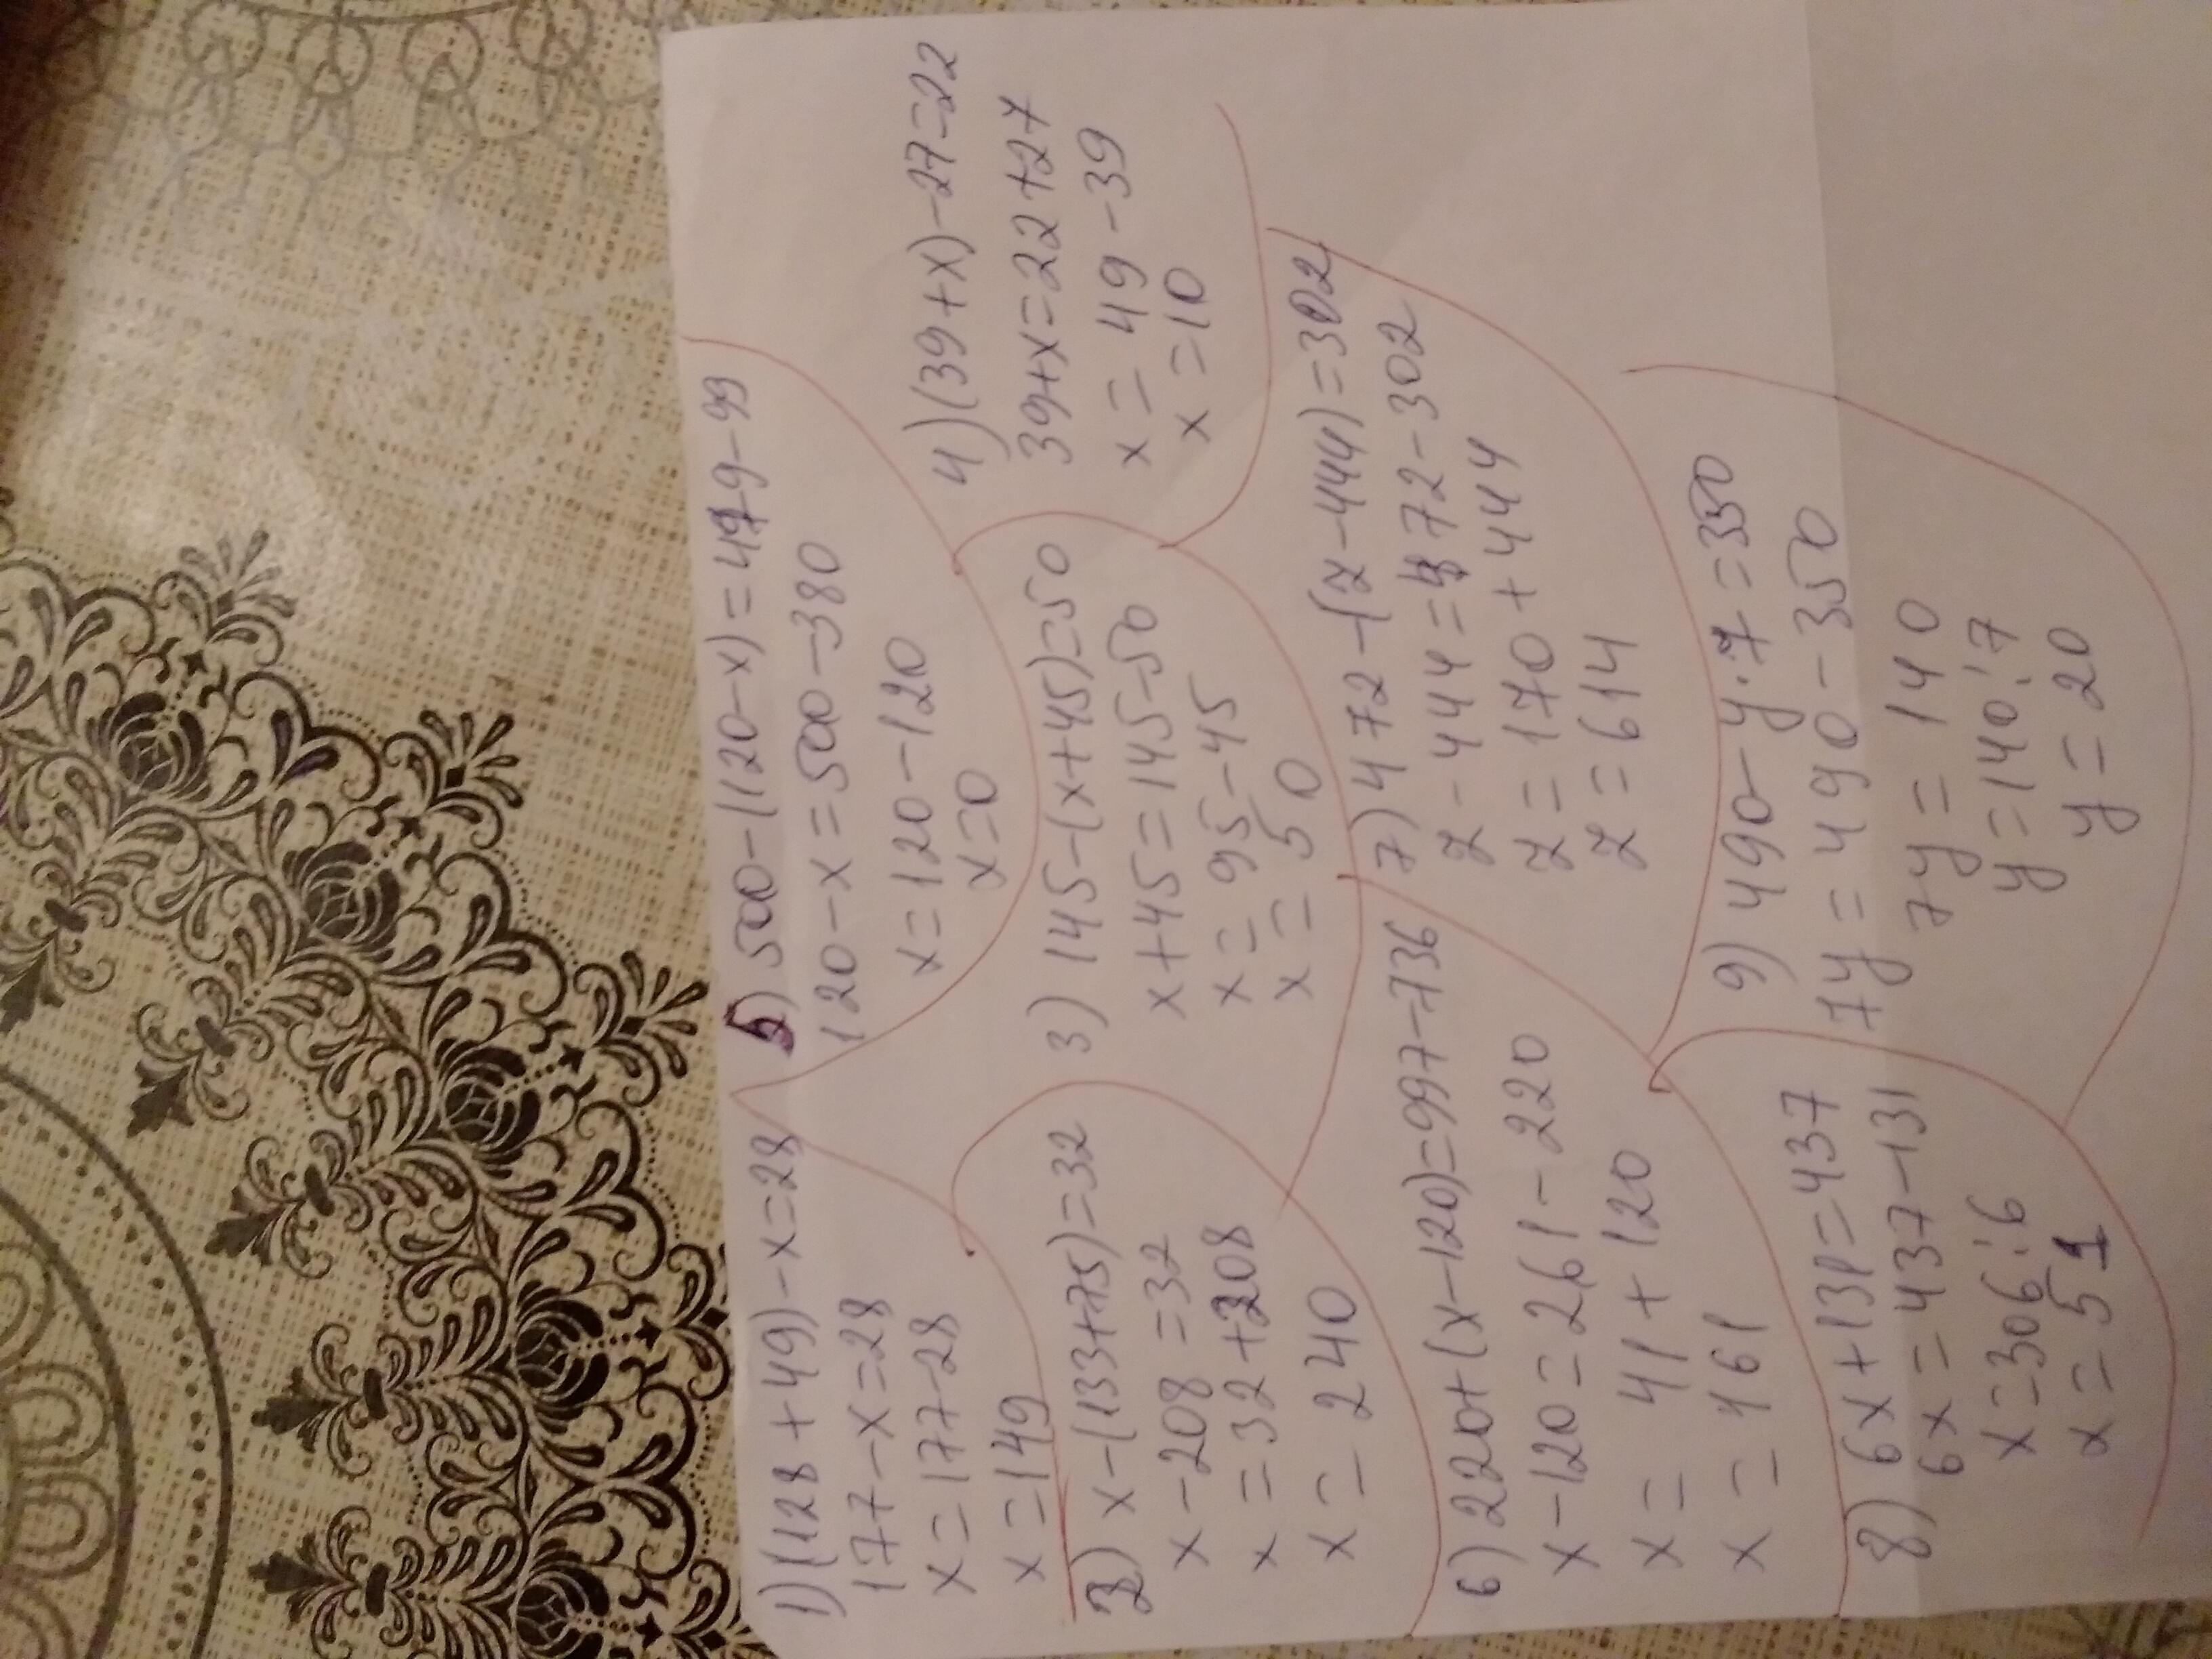 1) (128+49)-x=28
177-x=28
x=177-28
x=149
5) 500-(120-x)=479-99
120-x=500-380
x=120-120
x=0
2) x-(133+75)=32
x-208=32
x=32+208
x=240
3) 145-(x+45)=50
x+45=145-50
x=95-45
x=50
4) (39+x)-27=22
39+x=22+27
x=49-39
x=10
6) 220+(x-120)=997-736
x-120=261-220
x=41+120
x=161
7) 472-(z-444)=302
z-444=472-302
z=170+444
z=614
8) 6x+131=437
6x=437-131
x=306:6
x=51
9) 490-y·7=350
7y=490-350
7y=140
y=140:7
y=20